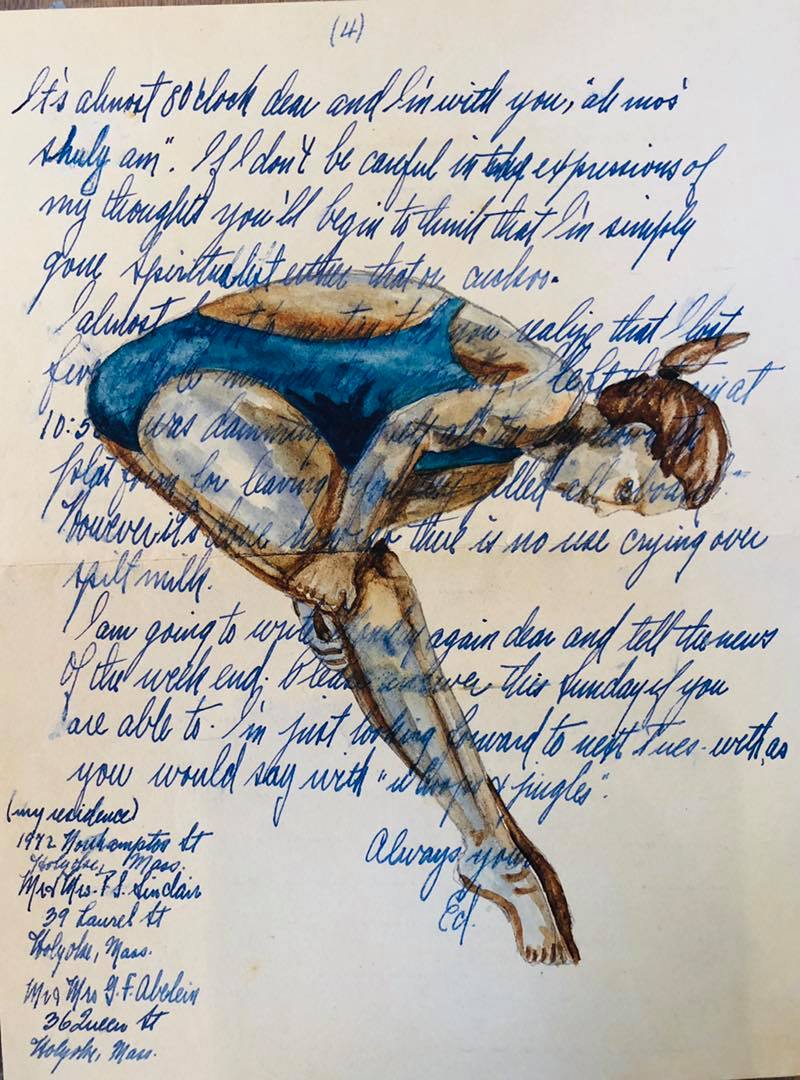 (4)
It's almost 8 o'clock dear and I'm with you, "ah mos'
shuly am". If I don't be careful in the expressions of
my thoughts you'll begin to think that I'm simply
gone spiritualist either that or cuckoo.
I almost you realize that I lost
five whole I left the at
10:5 was damming all the
platform for leaving filled all aboard
However it's done now so there is no use crying over
spilt milk.
I am going to write again dear and tell the news
of the week end. Please answer this Sunday if you
are able to. I'm just looking forward to next Tues. with, as
you would say with "whoops & jingles".
Always yours
Ed.
(my residence)
1972 Northampton St
Holyoke, Mass.
Mr & Mrs. F. S. Sinclair
39 Laurel St
Holyoke, Mass.
Mr & Mrs G. F. Abelein
36 Queen St
Holyoke, Mass.